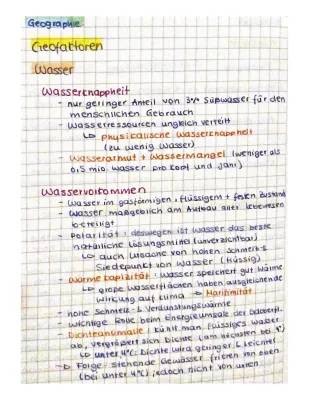 Geographie
Geofaktoren
Wasser
Wasserknappheit
- nur geringer Anteil von 3% Süßwasser für den
menschlichen Gebrauch
- Wasserressourcen ungleich verteilt
↳ physikalische Wasserknappheit
(zu wenig Wasser)
- Wasserarmut + Wassermangel (weniger als
0,5 mio. wasser pro Kopf und Jahr)
Wasservorkommen
- Wasser im gasförmigen, flüssigem + festen Zustand
- Wasser maßgeblich am Aufbau aller Lebewesen
beteiligt
- Polarität: deswegen ist Wasser das beste
natürliche Lösungsmittel (unverzichtbar)
↳ auch Ursache von hohen Schmelz- &
Siedepunkt von Wasser (flüssig)
- Wärmekapazität: Wasser speichert gut Wärme
↳ große Wasserflächen haben ausgleichende
wirkung auf Klima → Maritimität
- hohe Schmelz- & Verdunstungswärme
- wichtige Rolle beim Energieumsatz der
- Dichteanomalie: kühlt man flüssiges Wasser
ab, vergrößert sich Dichte (am höchsten bei 4°)
↳ unter 4°C: Dichte wird geringer & leichter
↳ Folge: stehende Gewässer frieren von oben
(bei unter 4°C), jedoch nicht von unten